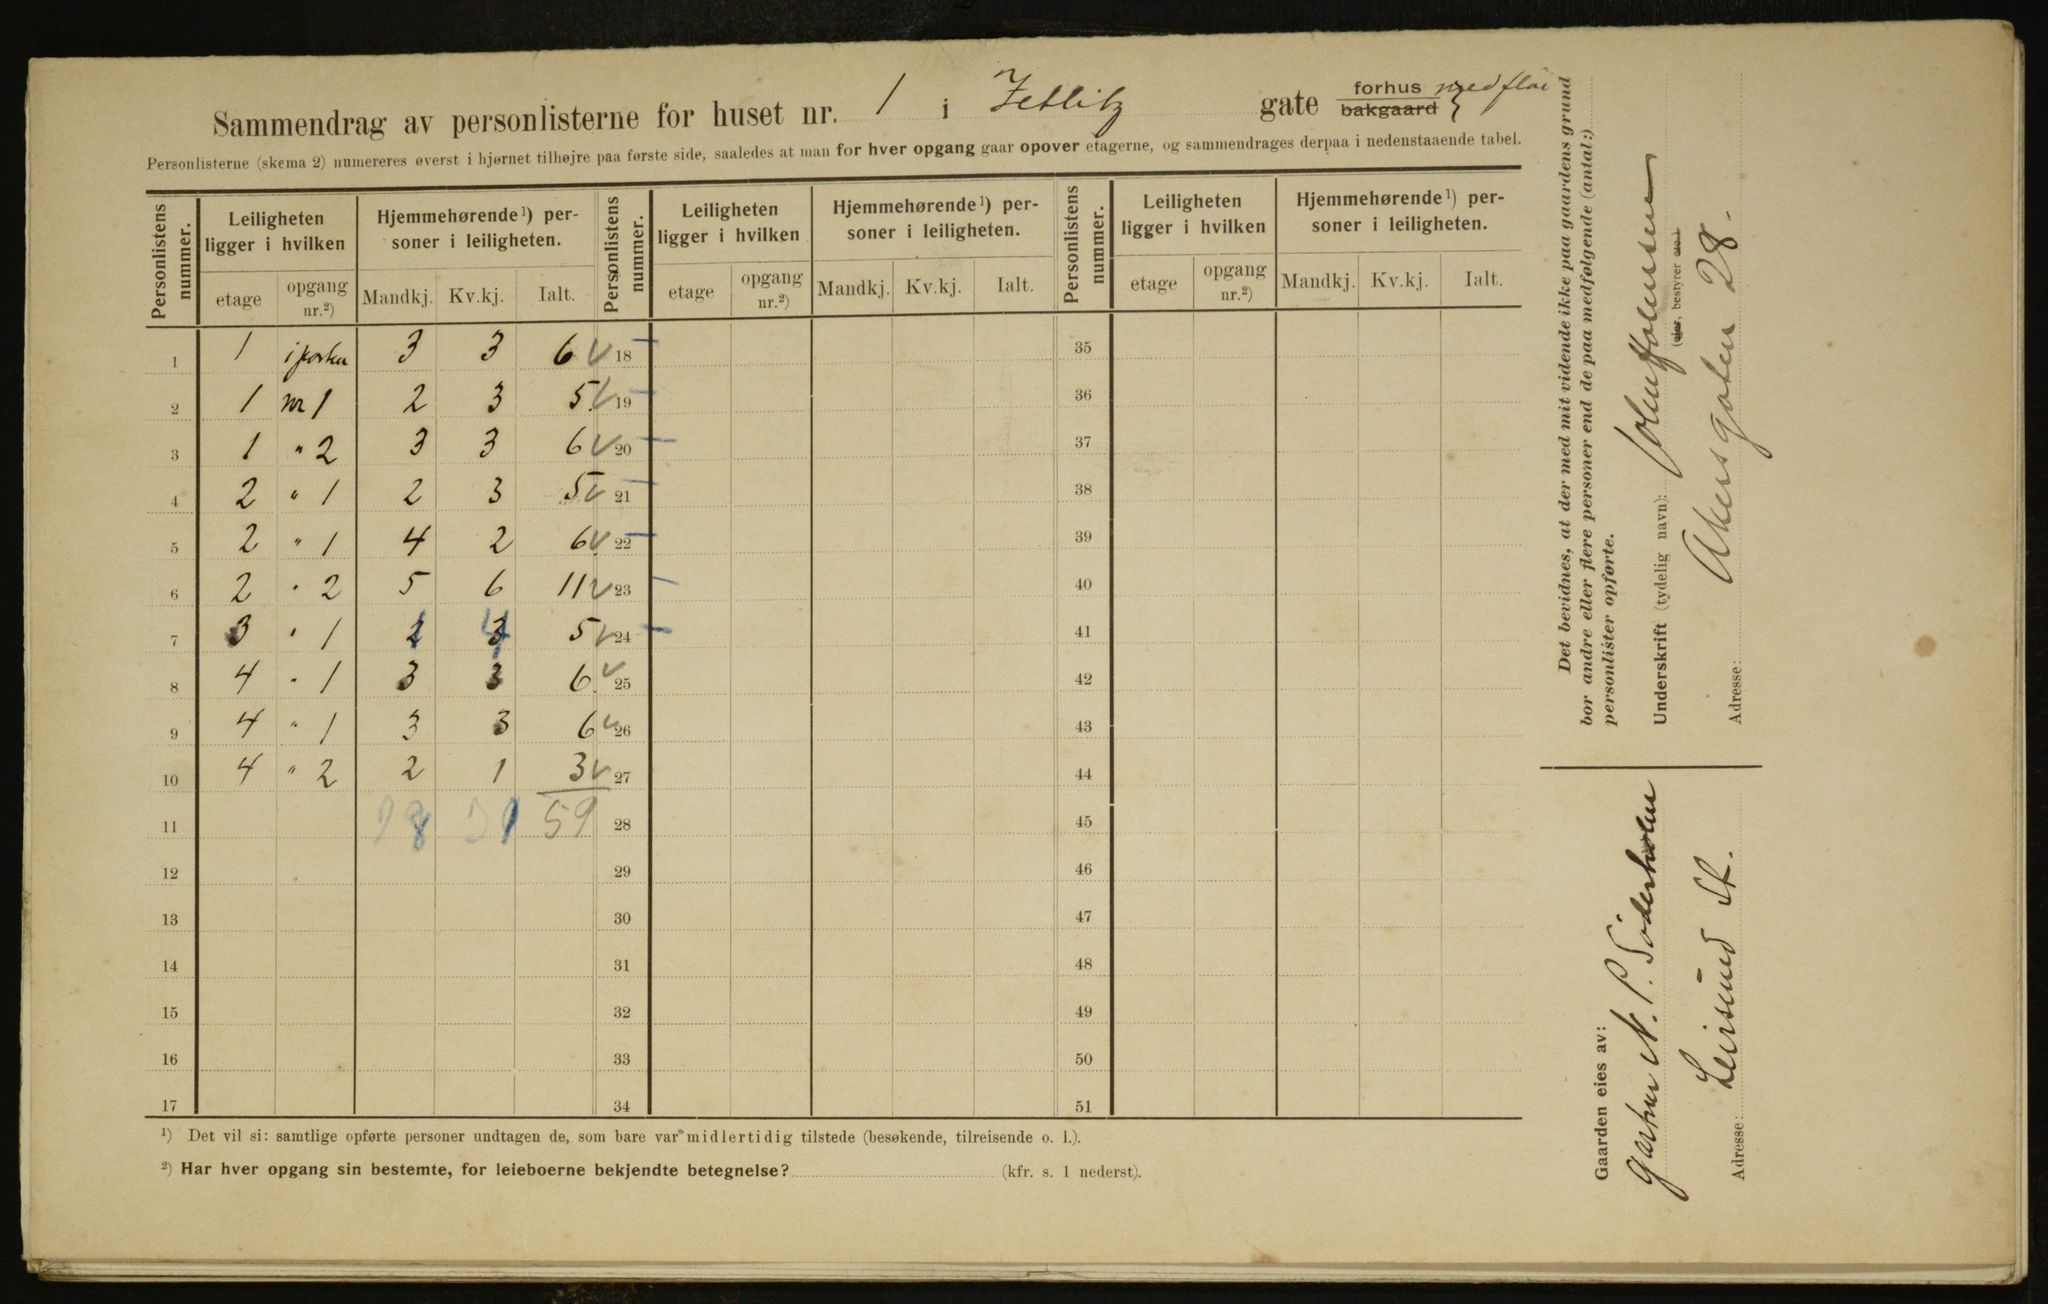 Sammendrag av personlisterne for huset nr. 1 i Zetlitz gate forhus bakgaard } med fløi
Personlisterne (skema 2) numereres øverst i hjørnet tilhøjre paa første side, saaledes at man for hver opgang gaar opover etagerne, og sammendrages derpaa i nedenstaaende tabel.
Personlistens nummer. Leiligheten ligger i hvilken Hjemmehørende¹) personer i leiligheten. Personlistens nummer. Leiligheten ligger i hvilken Hjemmehørende¹) personer i leiligheten. Personlistens nummer. Leiligheten ligger i hvilken Hjemmehørende¹) personer i leiligheten.
etage opgang nr.²) Mandkj. Kv.kj. Ialt. etage opgang nr.²) Mandkj. Kv.kj. Ialt. etage opgang nr.²) Mandkj. Kv.kj. Ialt.
1 1 i porten 3 3 6 18 35
2 1 nr 1 2 3 5 19 36
3 1 " 2 3 3 6 20 37
4 2 " 1 2 3 5 21 38
5 2 " 1 4 2 6 22 39
6 2 " 2 5 6 11 23 40
7 3 " 1 1 4 5 24 41
8 4 " 1 3 3 6 25 42
9 4 " 1 3 3 6 26 43
10 4 " 2 2 1 3 27 44
11 28 31 59 28 45
12 29 46
13 30 47
14 31 48
15 32 49
16 33 50
17 34 51
¹) Det vil si: samtlige opførte personer undtagen de, som bare var midlertidig tilstede (besøkende, tilreisende o. l.).
²) Har hver opgang sin bestemte, for leieboerne bekjendte betegnelse? (kfr. s. 1 nederst).
Det bevidnes, at der med mit vidende ikke paa gaardens grund
bor andre eller flere personer end de paa medfølgende (antal:)
personlister opførte.
Underskrift (tydelig navn):
(eier, bestyrer osv.)
Adresse: Akersgaten 28.
Gaarden eies av:
N. P. Söderholm
Adresse: Leirsund St.